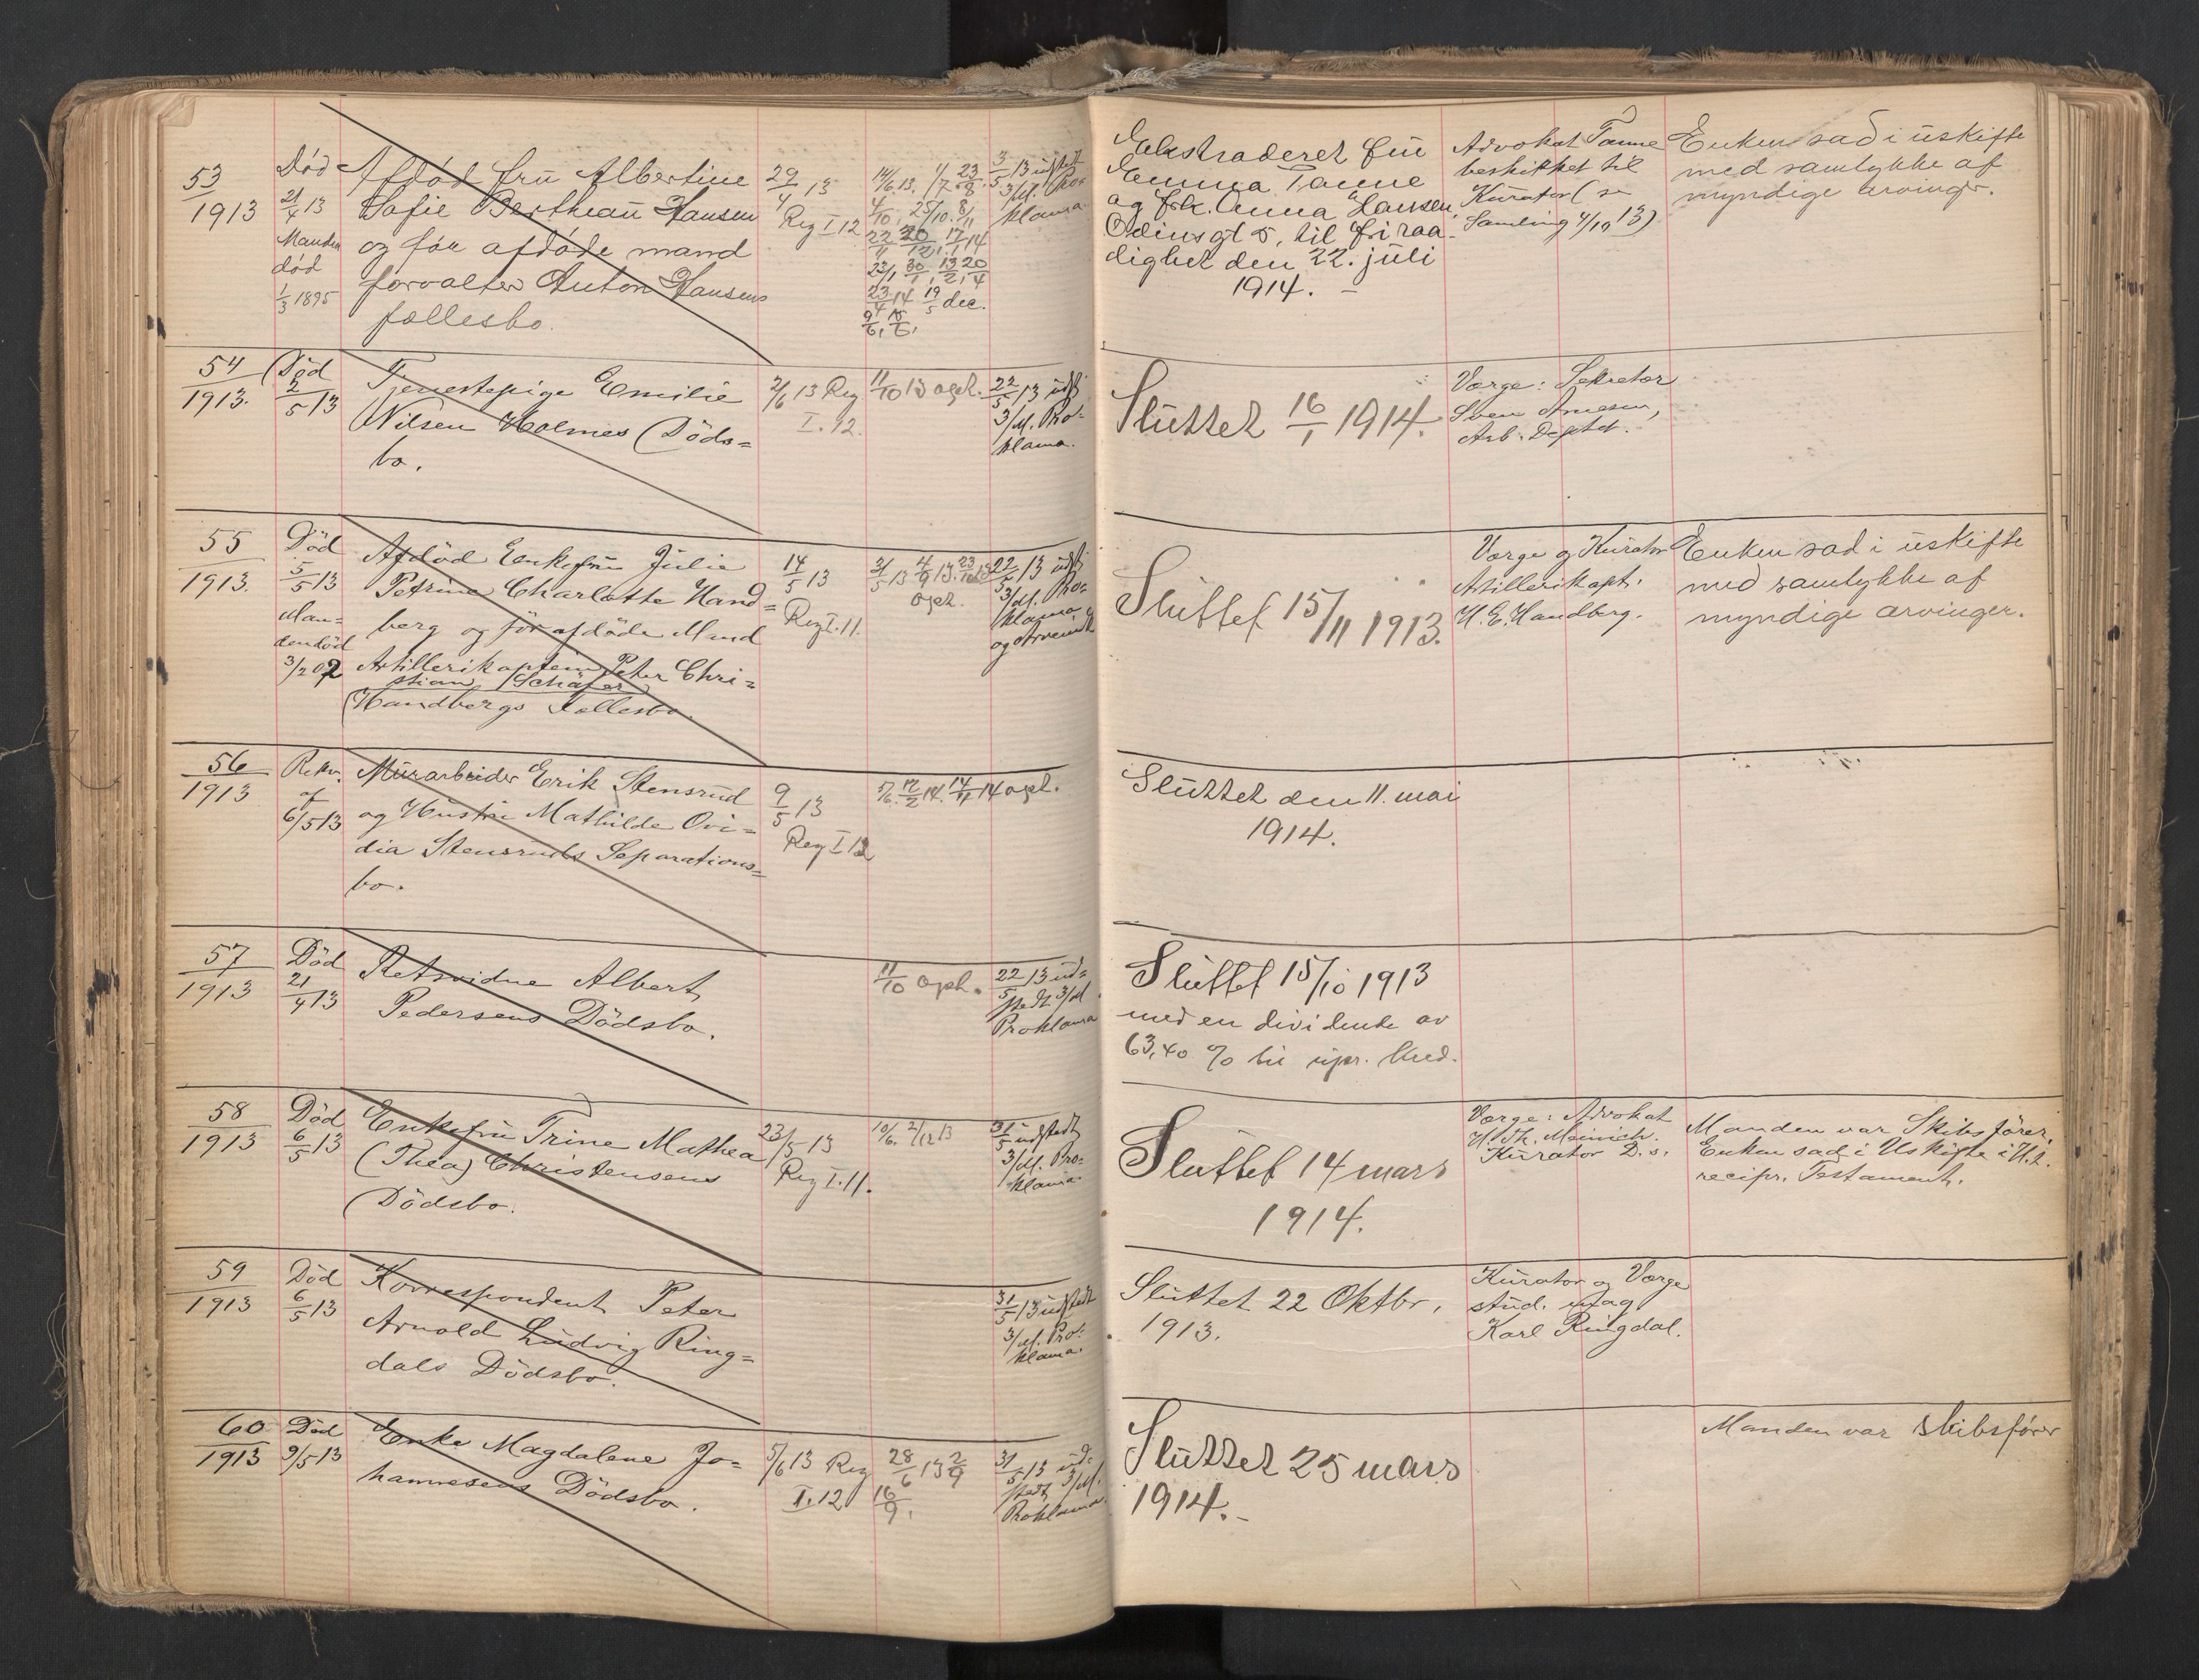 53
1913
Død
21/4 13
Manden
død
1/3 1895
Afdød fru Albertine
Sofie Bertheau Hansen
og før afdøde mand
forvalter Anton Hansens
fællesbo.
29/4 13
Reg I. 12
14/6 13. 1/7 23/8
4/10, 25/10. 8/11
22/11 20/12, 17/1 14
23/1, 30/1, 13/2, 20/4
23/4 14 19/5 dec.
9/6, 15/6,
3/5 13 udstedt
3/M. Pro-
klama.
Ekstraderet fru
Emma Tanne
og frk. Anna Hansen,
Odinsgt 5, til fri raa-
dighet den 22. juli
1914. –
Advokat Tanne
beskikket til
Kurator (se
Samling 4/10 13)
Enken sad i uskifte
med samtykke af
myndige arvinger.
54
1913.
Død
2/5 13
Tjenestepige Emilie
Nilsen Holmes Döds=
bo.
2/6 13 Reg
I. 12.
11/10 13 oph.
22/5 13 udst
3/M. Pro-
klama.
Sluttet 16/1 1914.
Værge: Sekretær
Sven Arnesen,
Arb. Deptet.
55
1913.
Död
5/5 13
Man=
dendöd
3/2 02
Afdöd Enkefru Julie
Petrine Charlotte Hand=
berg og för afdöde Mand
Artillerikaptein Peter Chri=
stian Schäfer
Handbergs Fællesbo.
14/5 13
Reg I. 11.
31/5 13 4/9 13. 23/10 13
oph.
22/5 13 udst
3/M. Pro-
klama
og Arveindk
Sluttet 15/11 1913.
Værge og Kurator
Artillerikapt.
H. E. Handberg.
Enken sad i uskifte
med samtykke af
myndige arvinger.
56
1913
Rekv.
af
6/5 13
Murarbeider Erik Stensrud
og Hustru Mathilde Ovi=
dia Stensruds Separations=
bo.
9/5 13
Reg I 12
5/6. 12/2 14. 14/4 14 oph.
Sluttet den 11. mai
1914.
57
1913
Död
21/4 13
Retsvidne Albert
Pedersens Dödsbo.
11/10 oph.
22/5 13 ud=
stedt 3/M
Proklama
Sluttet 15/10 1913
med en dividende av
63,40 % til upr. kred.
58
1913
Död
6/5 13
Enkefru Trine Mathea
(Thea) Christensens
Dödsbo.
23/5 13
Reg I. 11.
10/6. 2/12 13
31/5 udstedt
3/M. Pro-
klama.
Sluttet 14 mars
1914.
Værge: Advokat
H. Th. Meinich.
Kurator D. s.
Manden var Skibsförer.
Enken sad i Uskifte i H. t.
recipr. Testament.
59
1913
Död
6/5 13
Korrespondent Peter
Arnold Ludvig Ring=
dals Dödsbo.
31/5 13 udstedt
3/M. Pro-
klama.
Sluttet 22 Oktbr.
1913.
Kurator og Værge
stud. mag.
Karl Ringdal.
60
1913
Död
9/5 13
Enke Magdalene Jo=
hannesens Dödsbo.
5/6 13 Reg
I. 12
28/6 13 2/9
16/9.
31/5 13 ud-
stedt 3/M.
Proklama.
Sluttet 25 mars
1914. –
Manden var skibsfører